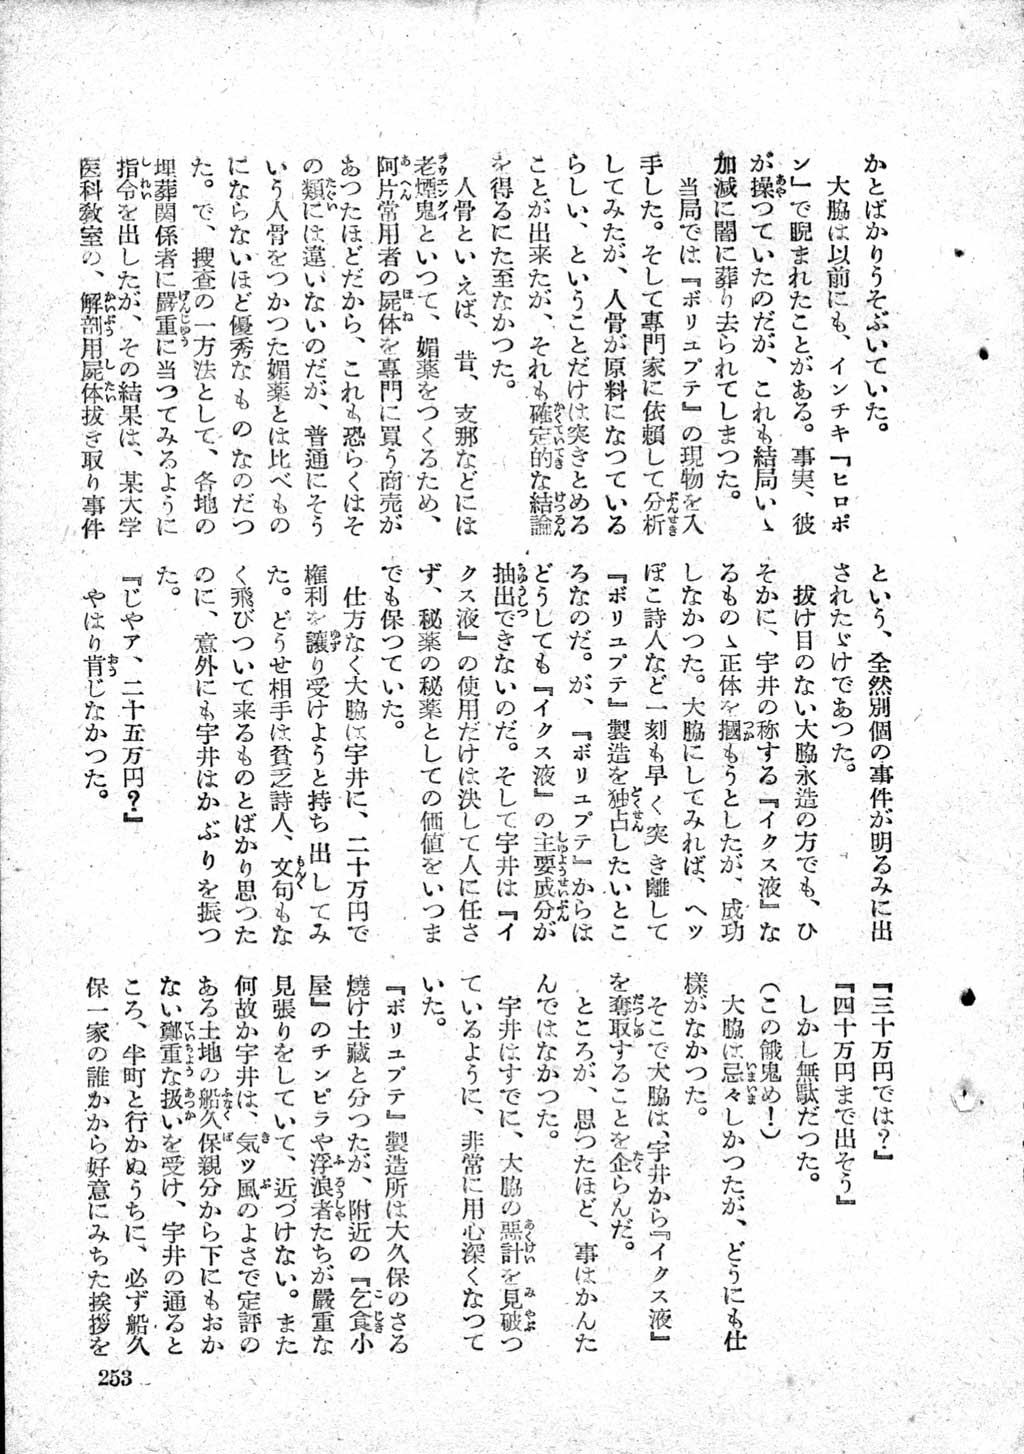 かとばかりうそぶいていた。
　大脇は以前にも、インチキ『ヒロポ
ン』で睨まれたことがある。事実、彼
が操つていたのだが、これも結局いゝ
加減に闇に葬り去られてしまつた。
　当局では『ボリュプテ』の現物を入
手した。そして専門家に依頼して分析
してみたが、人骨が原料になつている
らしい、ということだけは突きとめる
ことが出来たが、それも確定的な結論
を得るにた至なかつた。
　人骨といえば、昔、支那などには
老煙鬼といつて、媚薬をつくるため、
阿片常用者の屍体を専門に買う商売が
あつたほどだから、これも恐らくはそ
の類には違いないのだが、普通にそう
いう人骨をつかつた媚薬とは比べもの
にならないほど優秀なものなのだつ
た。で、捜査の一方法として、各地の
埋葬関係者に嚴重に当つてみるように
指令を出したが、その結果は、某大学
医科教室の、解剖用屍体抜き取り事件
という、全然別個の事件が明るみに出
されたゞけであつた。
　抜け目のない大脇永造の方でも、ひ
そかに、宇井の称する『イクス液』な
るものゝ正体を摑もうとしたが、成功
しなかつた。大脇にしてみれば、ヘッ
ぽこ詩人など一刻も早く突き離して
『ボリュプテ』製造を独占したいとこ
ろなのだ。が、『ボリュプテ』からは
どうしても『イクス液』の主要成分が
抽出できないのだ。そして宇井は『イ
クス液』の使用だけは決して人に任さ
ず、秘薬の秘薬としての価値をいつま
でも保つていた。
　仕方なく大脇は宇井に、二十万円で
権利を讓り受けようと持ち出してみ
た。どうせ相手は貧乏詩人、文句もな
く飛びついて来るものとばかり思つた
のに、意外にも宇井はかぶりを振つ
た。
『じやア、二十五万円？』
　やはり肯じなかつた。
『三十万円では？』
『四十万円まで出そう』
　しかし無駄だつた。
（この餓鬼め！）
　大脇は忌々しかつたが、どうにも仕
様がなかつた。
　そこで大脇は、宇井から『イクス液』
を奪取することを企らんだ。
　ところが、思つたほど、事はかんた
んではなかつた。
　宇井はすでに、大脇の悪計を見破つ
ているように、非常に用心深くなつて
いた。
『ボリュプテ』製造所は大久保のさる
焼け土蔵と分つたが、附近の『乞食小
屋』のチンピラや浮浪者たちが嚴重な
見張りをしていて、近づけない。また
何故か宇井は、気ッ風のよさで定評の
ある土地の船久保親分から下にもおか
ない鄭重な扱いを受け、宇井の通ると
ころ、半町と行かぬうちに、必ず船久
保一家の誰かから好意にみちた挨拶を
253